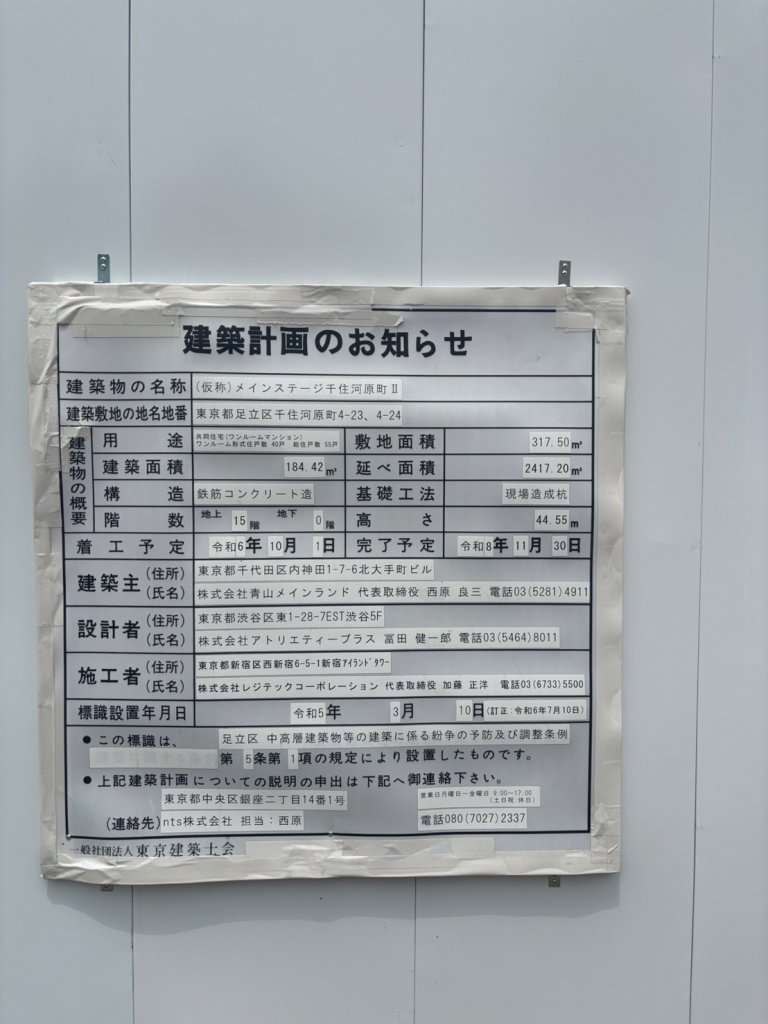 建築計画のお知らせ
建築物の名称 (仮称)メインステージ千住河原町Ⅱ
建築敷地の地名地番 東京都足立区千住河原町4-23、4-24
建築物の概要
用途 共同住宅(ワンルームマンション)
ワンルーム形式住戸数 40戸 総住戸数 55戸
敷地面積 317.50㎡
建築面積 184.42㎡ 延べ面積 2417.20㎡
構造 鉄筋コンクリート造 基礎工法 現場造成杭
階数 地上 15階 地下 0階 高さ 44.55m
着工予定 令和6年 10月 1日 完了予定 令和8年 11月 30日
建築主 (住所) 東京都千代田区内神田1-7-6北大手町ビル
(氏名) 株式会社青山メインランド 代表取締役 西原 良三 電話03(5281)4911
設計者 (住所) 東京都渋谷区東1-28-7EST渋谷5F
(氏名) 株式会社アトリエティープラス 冨田 健一郎 電話03(5464)8011
施工者 (住所) 東京都新宿区西新宿6-5-1新宿ｱｲﾗﾝﾄﾞﾀﾜｰ
(氏名) 株式会社レジテックコーポレーション 代表取締役 加藤 正洋 電話03(6733)5500
標識設置年月日 令和5年 3月 10日(訂正:令和6年7月10日)
● この標識は、 足立区 中高層建築物等の建築に係る紛争の予防及び調整条例
第 5条第 1項の規定により設置したものです。
● 上記建築計画についての説明の申出は下記へ御連絡下さい。
東京都中央区銀座二丁目14番1号 営業日月曜日～金曜日 9:00～17:00
(土日祝 休日)
(連絡先) nts株式会社 担当：西原 電話080(7027)2337
一般社団法人 東京建築士会